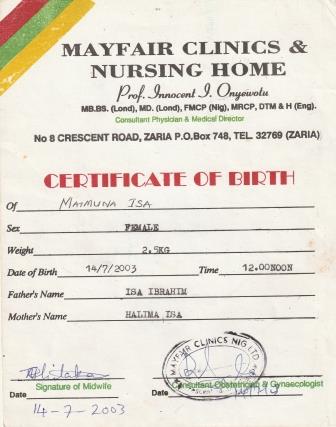 MAYFAIR CLINICS &
NURSING HOME
Prof. Innocent I. Onyewotu
MB.BS. (Lond), MD. (Lond), FMCP (Nig), MRCP, DTM & H (Eng).
Consultant Physician & Medical Director
No 8 CRESCENT ROAD, ZARIA P.O.Box 748, TEL. 32769 (ZARIA)
CERTIFICATE OF BIRTH
Of MAIMUNA ISA
Sex FEMALE
Weight 2.5KG
Date of Birth 14/7/2003 Time 12.00NOON
Father's Name ISA IBRAHIM
Mother's Name HALIMA ISA
MAYFAIR CLINICS NIG LTD
Signature of Midwife Consultant Obstetrician & Gynaecologist
Date Date
14-7-2003